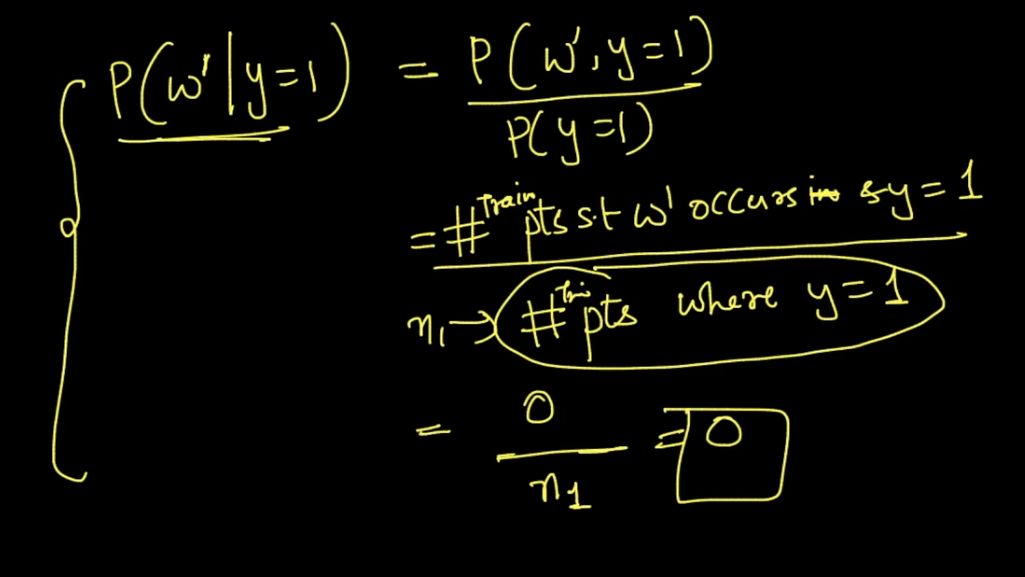 P(w'|y=1) = P(w', y=1)
P(y=1)
= # Train pts s.t w' occurs in & y = 1
n1 → # Train pts where y = 1
= 0 = 0
n1